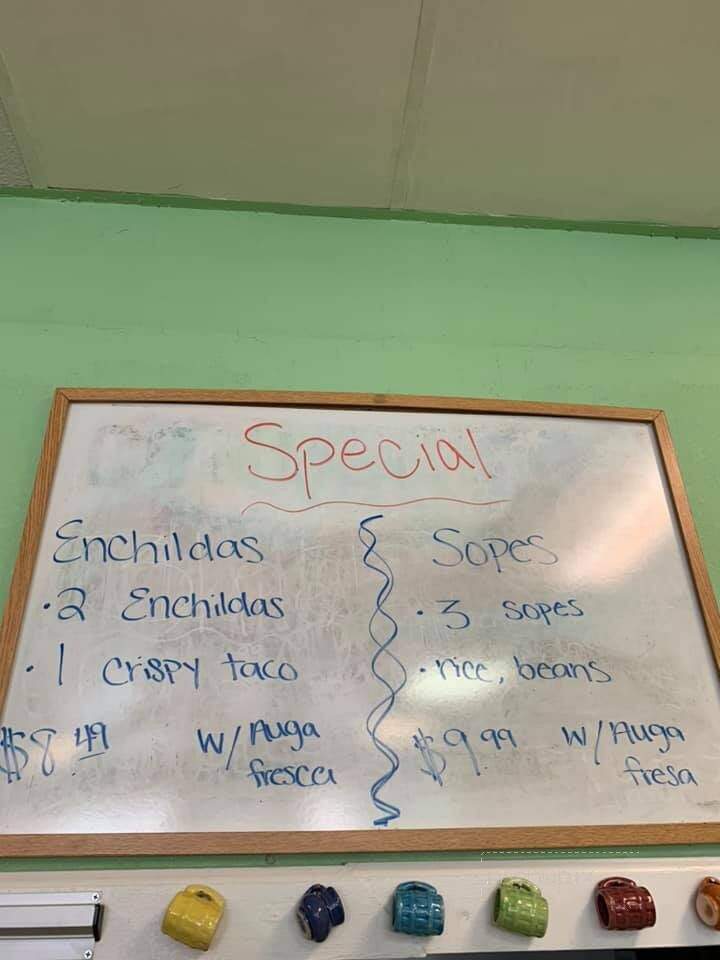 Special
Enchildas
·2 Enchildas
·1 crispy taco
$8.49 w/Auga
fresca
Sopes
·3 sopes
·rice, beans
$9.99 w/Auga
fresa